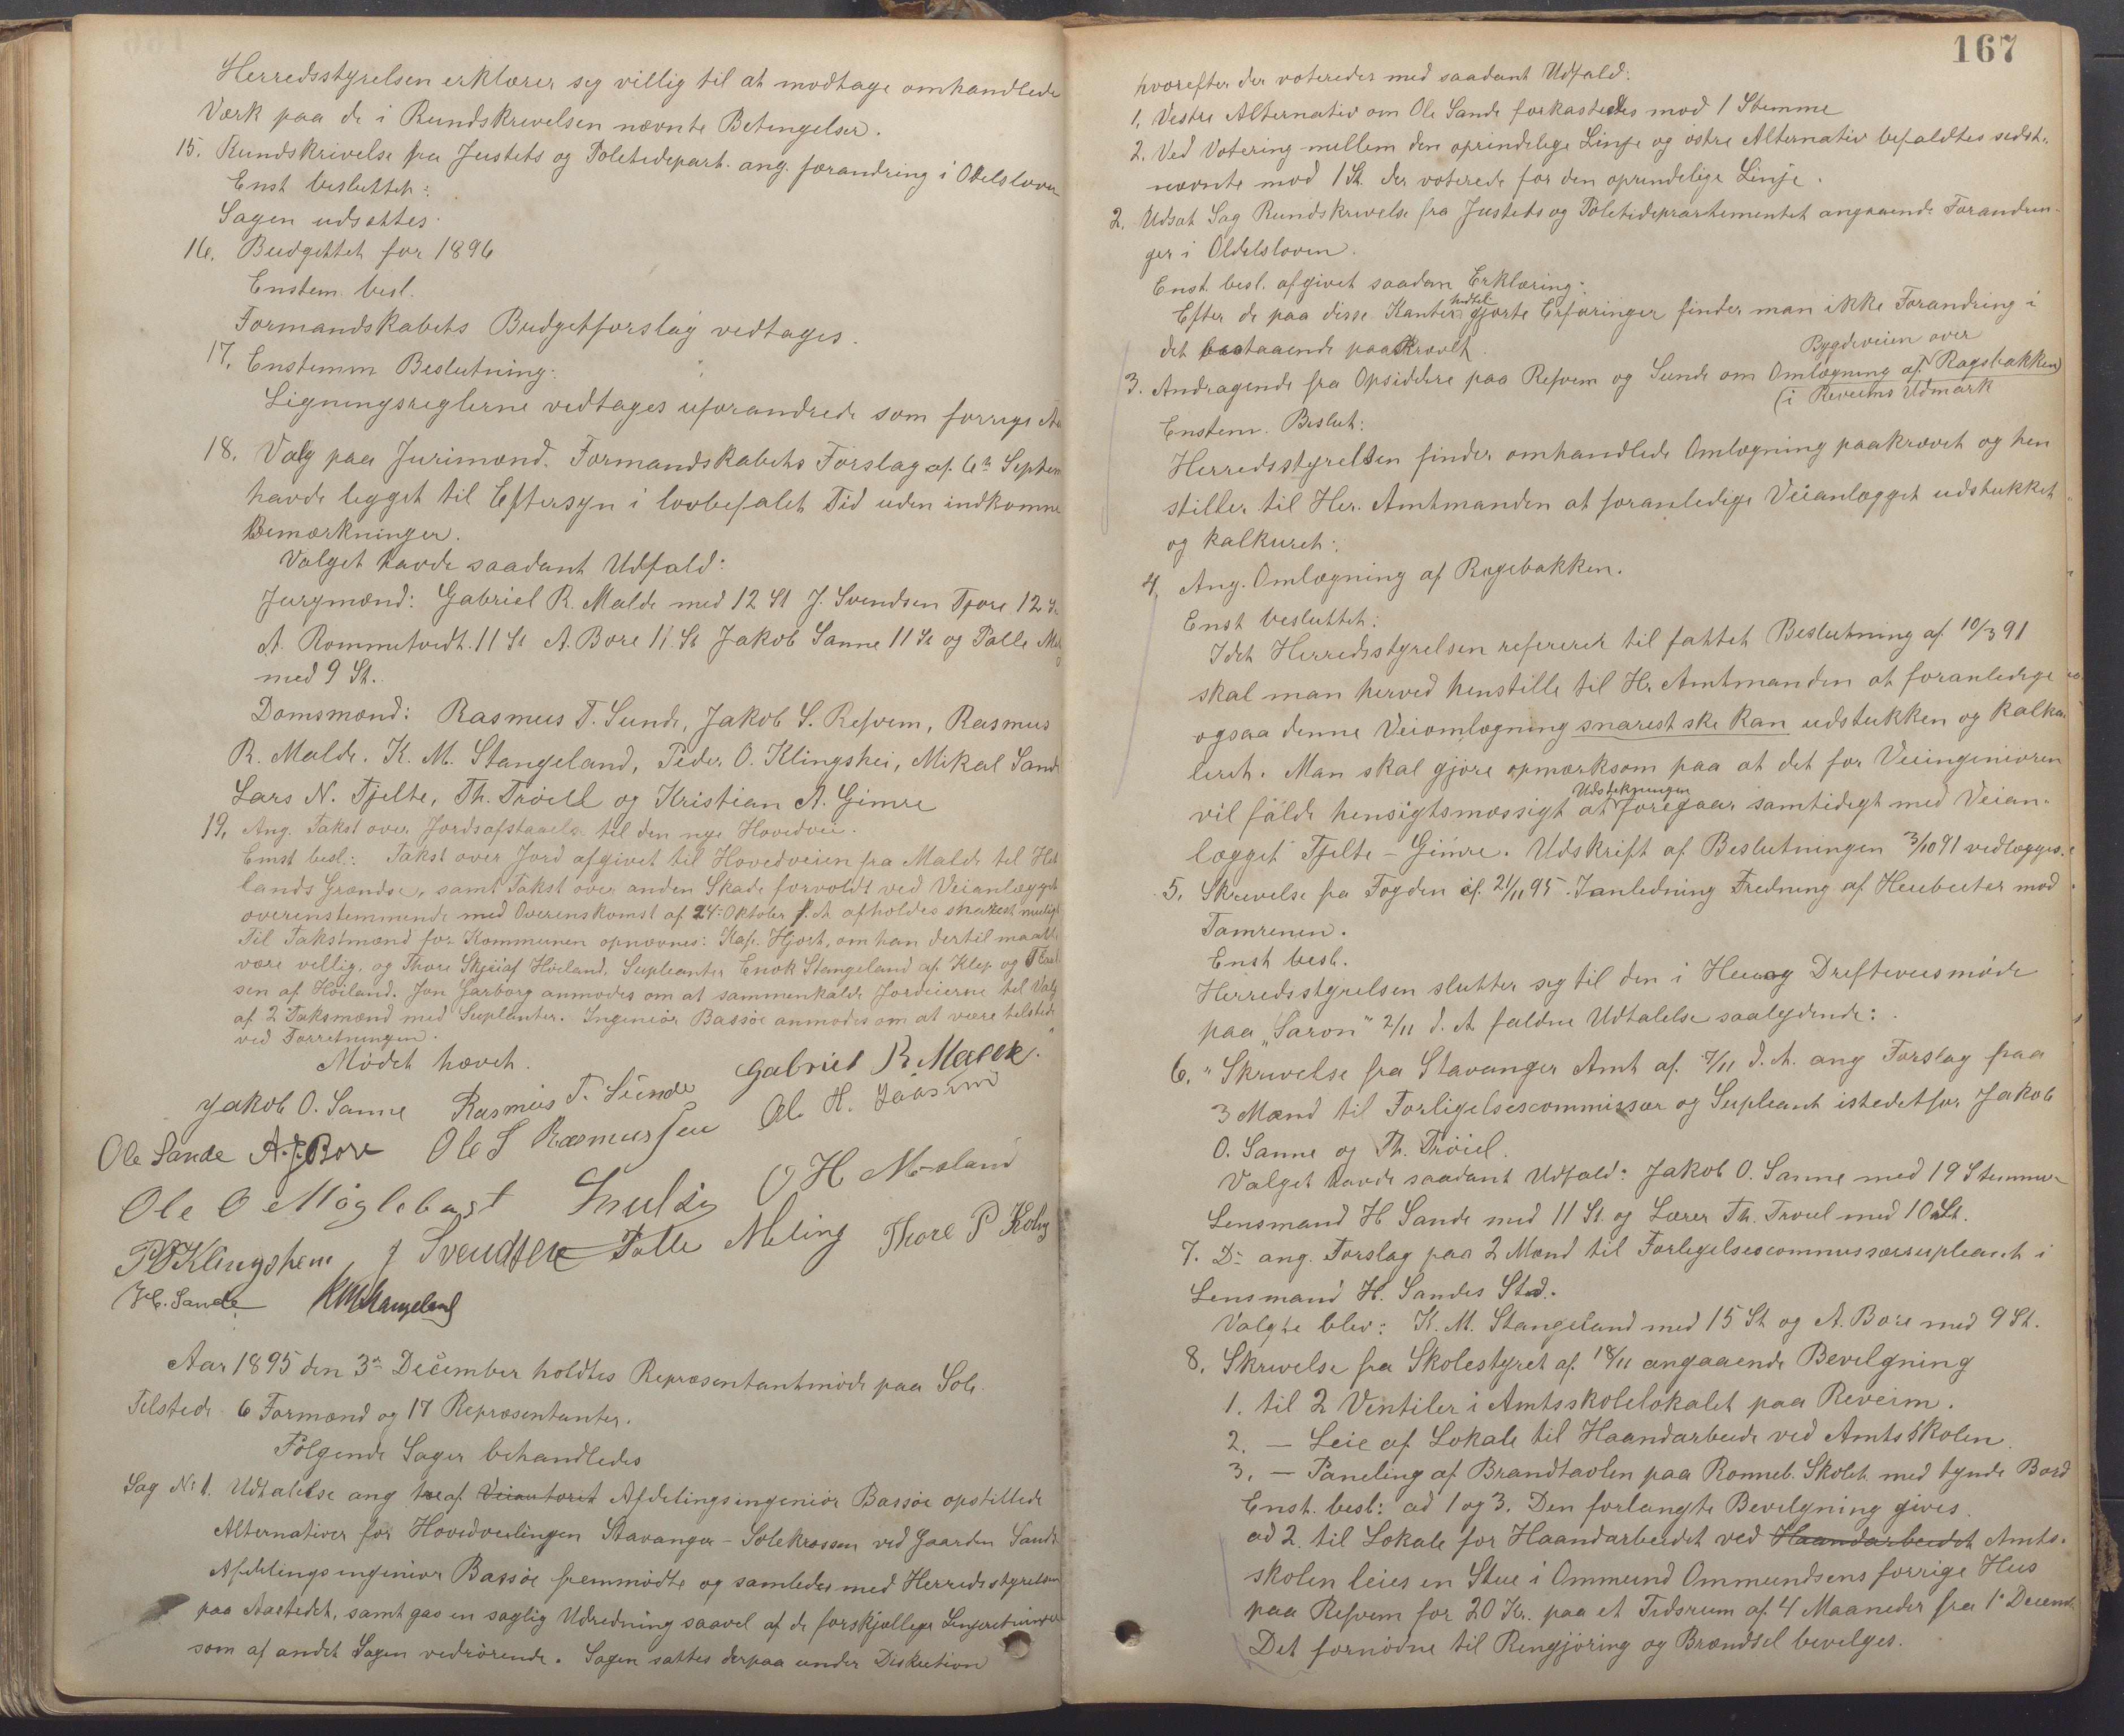 Herredsstyrelsen erklærer seg villig til at modtage omhandlede
Værk paa de i Rundskrivelsen nævnte Betingelser.
15. Rundskrivelse fra Justits og Politidepart. ang. forandring i Odelsloven
Enst besluttet:
Sagen udsættes.
16. Budgettet for 1896
Enstem. besl.
Formandskabets Budgetforslag vedtages.
17. Enstemm Beslutning:
Ligningsreglerne vedtages uforandrede som forrige Aa
18. Valg paa Jurimænd. Formandskabets Forslag af 6te Septem
havde legget til Eftersyn i lovbefalet Tid uden indkomne
Bemærkninger.
Valget havde saadant Udfald:
Jurymænd: Gabriel R. Malde med 12 St J. Svendsen Tjore 12 St
A. Rommetvedt. 11 St A. Bore 11. St Jakob Sanne 11 St og Palle Me
med 9 St.
Domsmænd: Rasmus T. Sunde, Jakob S. Refvem, Rasmus
R. Malde. K. M. Stangeland, Peder O. Klingshei, Mikal Sande
Lars N. Tjelte, Th. Tröiel og Kristian A. Gimre
19. Ang. Takst over Jordsafstaaelse til den nye Hovedvei.
Enst besl.: Takst over Jord afgivet til Hovedveien fra Malde til Het
lands Grændse, samt Takst over anden Skade forvoldt ved Veianlægget
overenstemmende med Overenskomst af 24de Oktober f. A. afholdes snarest muligt
Til Takstmænd for Kommunen opnævnes: Kap. Hjort, om han dertil maatte
være villig, og Thore Skjeie af Höiland. Supleanter Enok Stangeland af Klep og
sen af Höiland. Jon Garborg anmodes om at sammenkalde Jordeierne til Valg
af 2 Taksmænd med Suplanter. Ingeniör Bassöe anmodes om at være tilstede
ved Forretningen.
Mødet hævet.
Jakob O. Sanne Rasmus T. Sunde Gabriel R. Malde.
Ole Sande A. J. Bore Ole S Rasmussen Ol. H. Jaasund
Ole O Møglebust O H Mæland
P O Klingsheim J Svendsen Palle Meling Thore P
H. Sande KMStangeland
Aar 1895 den 3de December holdtes Repræsentantmöde paa Sole.
Tilstede 6 Formænd og 17 Repræsentanter.
Fölgende Sager behandledes
Sag No 1. Udtalelse ang tre af Veiautorit Afdelingsingeniör Bassöe opstillede
Alternativer for Hovedveilingen Stavanger - Solekrossen ved Gaarden Sande
Afdelingsingeniör Bassöe fremmödte og samledes med Herredsstyrelsen
paa Aastedet, samt gav en saglig Udredning saavel af de forskjellige Linjeretninger
som af andet Sagen vedrörende. Sagen sattes derpaa under Diskution
167
hvorefter der voteredes med saadant Udfald:
1. Vestre Alternativ om Ole Sande forkastedes mod 1 Stemme
2. Ved Votering mellem den oprindelige Linje og östre Alternativ befaldtes sidst-
nævnte mod 1 St. der voterede for den oprindelige Linje.
2. Udsat Sag Rundskrivelse fra Justits og Politideprartementet angaaende Forandrin-
ger i Oldelsloven.
Enst. besl. afgivet saadan Erklæring:
Efter de paa disse Kanter hidtil gjorte Erfaringer finder man ikke Forandring i
det bestaaende paakrævet.
3. Andragende fra Opsiddere paa Refvem og Sunde om Omlægning af Bygdeveien over Ragsbakken
(i Reveims Udmark
Enstem. Beslut:
Herredsstyrelsen finder omhandlede Omlægning paakrævet og hen
stiller til Her. Amtmanden at foranledige Veianlægget udstukket
og kalkuret:
4. Ang. Omlægning af Ragebakken.
Enst besluttet:
Idet Herredsstyrelsen refererer til fattet Beslutning af 10/3 91
skal man herved henstille til Hr. Amtmanden at foranledige
ogsaa denne Veiomlægning snarest ske kan udstukken og kalku
leret. Man skal gjöre opmærksom paa at det for Veiingeniören
vil falde hensigtsmæssigt at Udstikningen foregaar samtidigt med Veian-
lægget Tjelte - Gimre. Udskrift af Beslutningen 3/10 91 vedlægges.
5. Skrivelse fra Fogden af 21/11 95. Ianledning Fredning af Heibeiter mod
Tamrenen.
Enst besl.
Herredsstyrelsen slutter sig til den i Heieog Drifteveismöde
paa „Saron" 2/11 d. A faldne Udtalelse saalydende:
6. " Skrivelse fra Stavanger Amt af 7/11 d. A. ang Forslag paa
3 Mænd til Forligelsescommissær og Supleant istedetfor Jakob
O. Sanne og Th. Tröiel.
Valget havde saadant Udfald: Jakob O. Sanne med 19 Stemmer
Lensmand H. Sande med 11 St. og Lærer Th. Troiel med 10 St.
7. Do ang. Forslag paa 2 Mænd til Forligelsescommissærsupleant i
Lensmand H. Sandes Sted.
Valgte blev: K. M. Stangeland med 15 St og A. Bore med 9 St.
8. Skrivelse fra Skolestyret af 18/11 angaaende Bevilgning
1. til 2 Ventiler i Amtsskolelokalet paa Reveim.
2. — Leie af Lokale til Haandarbeide ved Amtsskolen.
3. — Paneling af Brandtavlen paa Ronneb. Skoleh med tynde Bord
Enst. besl: ad 1 og 3. Den forlangte Bevilgning gives.
ad 2. til Lokale for Haandarbeidet ved Haandarbeidet Amts-
skolen leies en Stue i Ommund Ommundsens forrige Hus
paa Refvem for 20 Kr. paa et Tidsrum af 4 Maaneder fra 1ste Decemb
Det fornödne til Rengjöring og Brændsel bevilges.